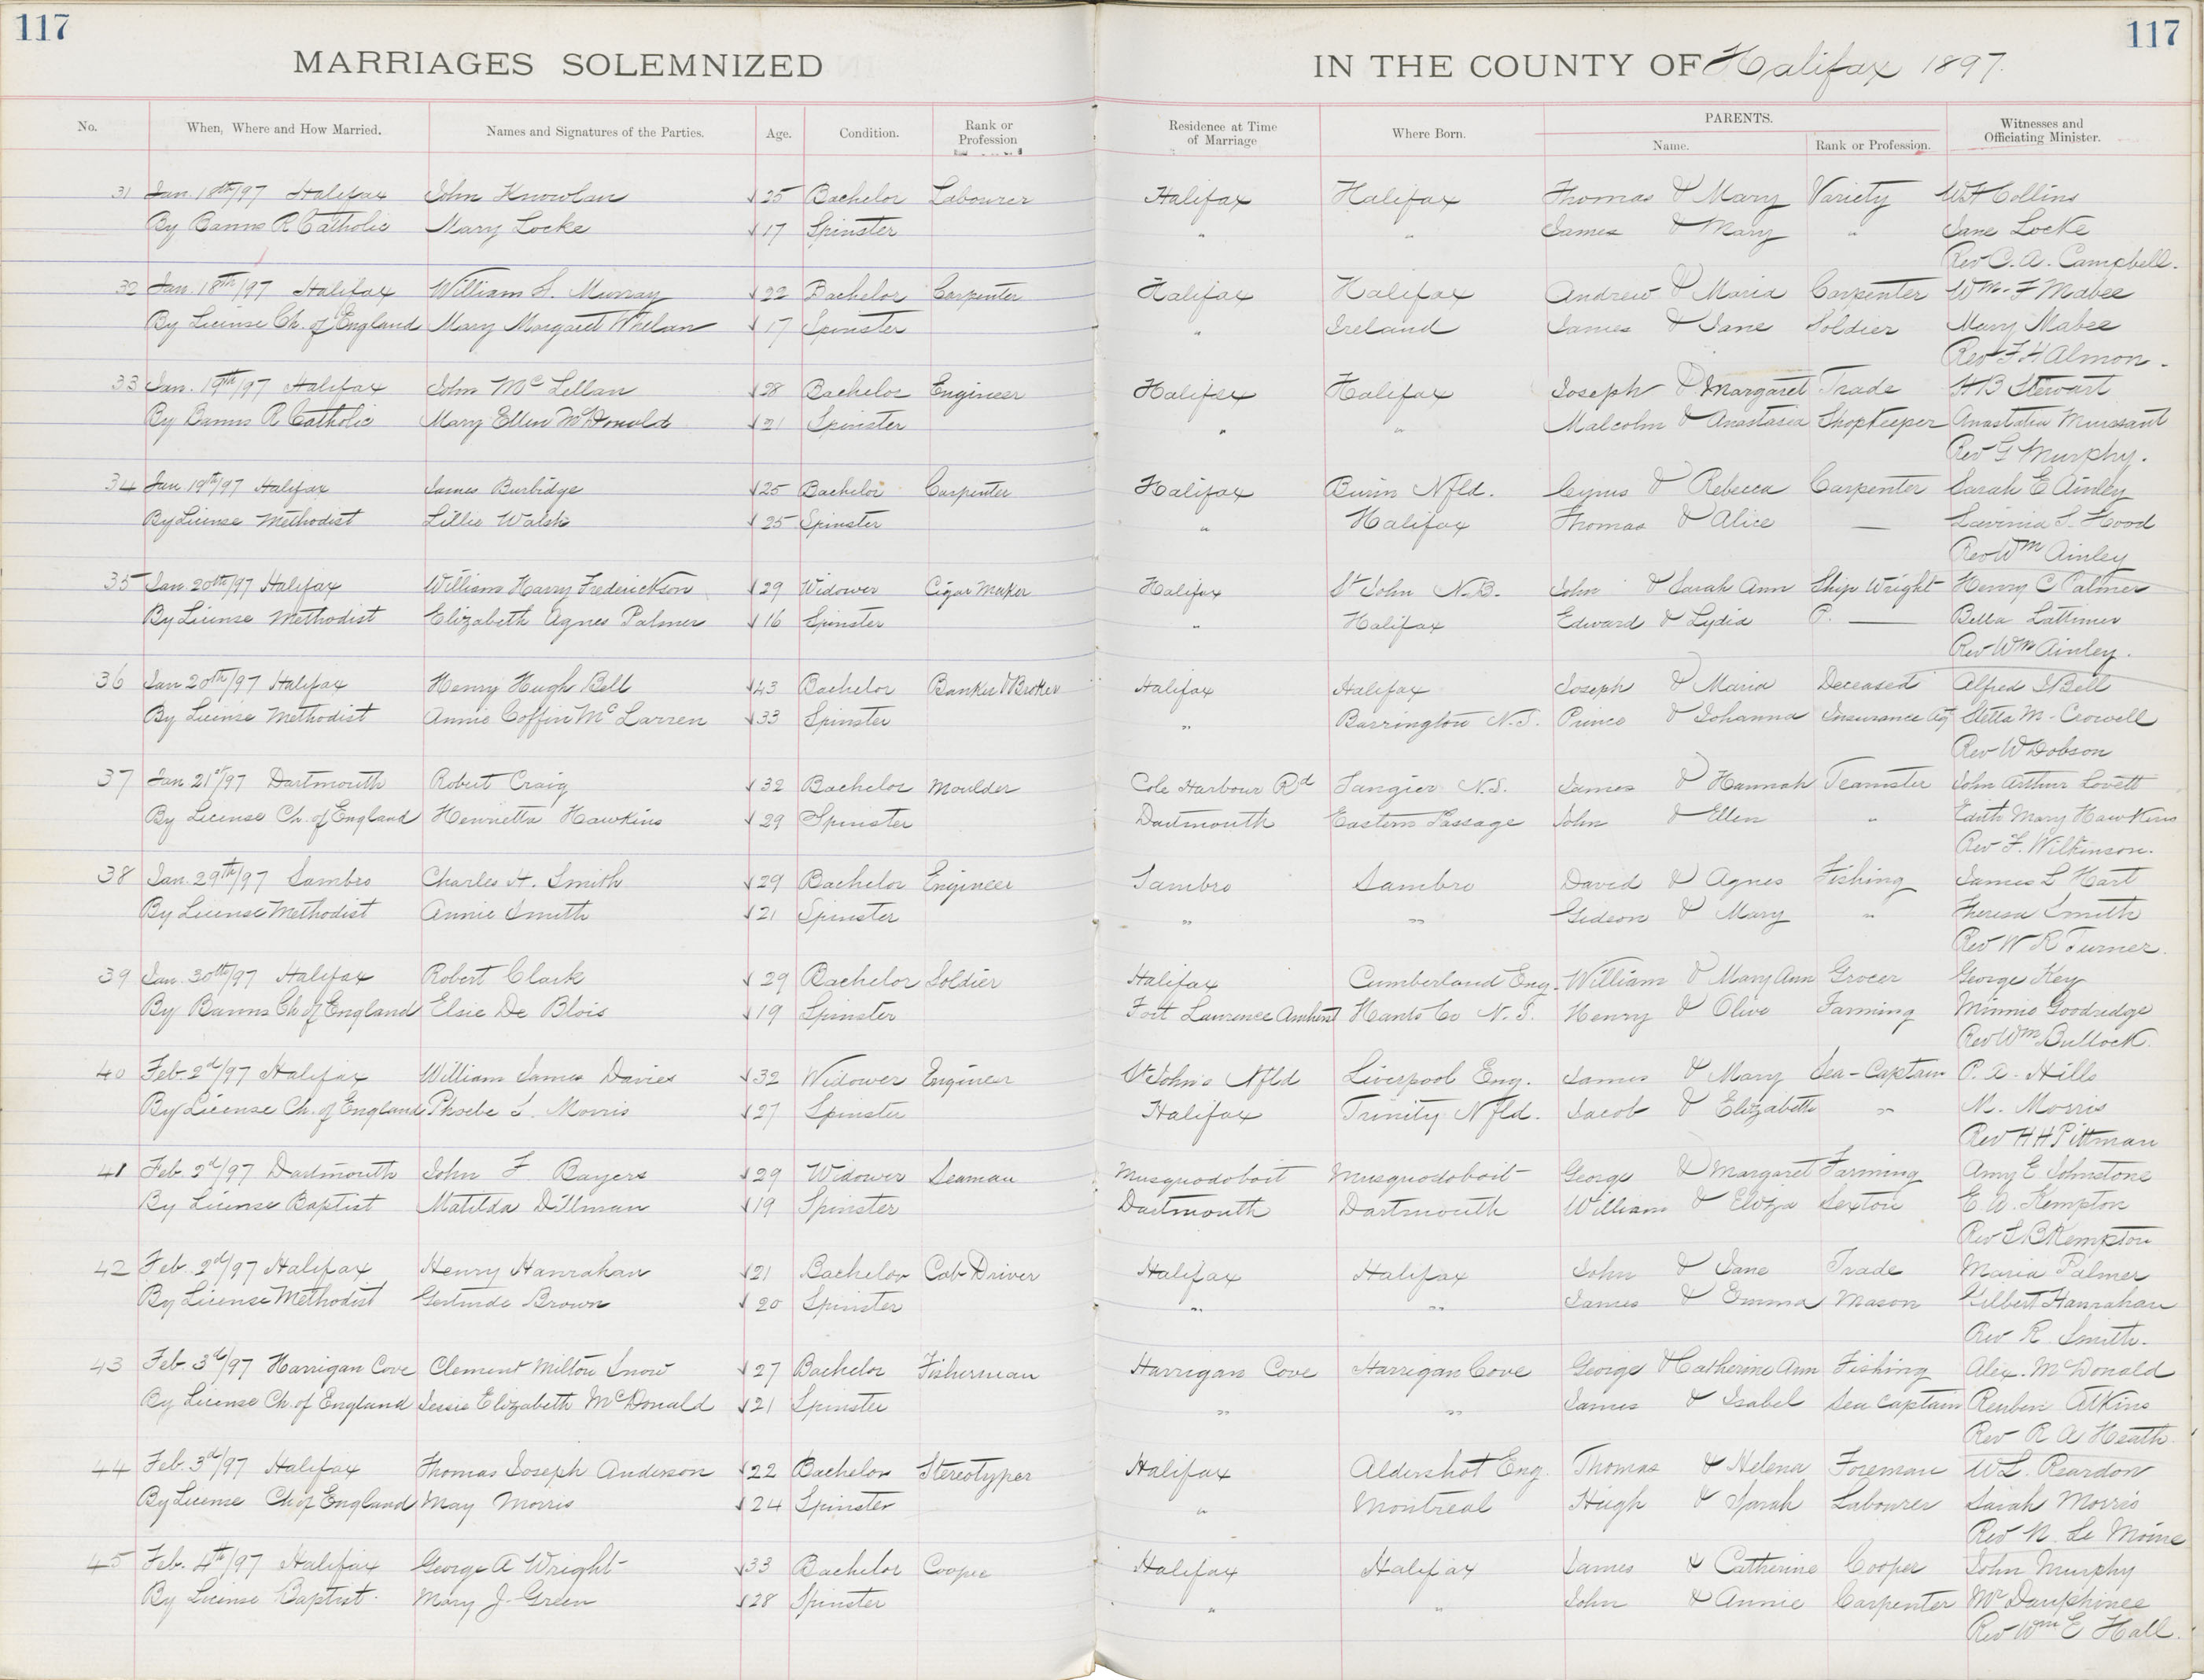 117
117
MARRIAGES SOLEMNIZED IN THE COUNTY OF Halifax 1897.
No. When, Where and How Married. Names and Signatures of the Parties. Age. Condition. Rank or Profession Residence at Time of Marriage Where Born. PARENTS. Name. Rank or Profession. Witnesses and Officiating Minister.
31 Jan. 18th/97 Halifax John Knowlan 25 Bachelor Labourer Halifax Halifax Thomas & Mary Variety W H Collins
By Banns R Catholic Mary Locke 17 Spinster " " James & Mary " Jane Locke
Rev C. A. Campbell.
32 Jan. 18th/97 Halifax William S. Murray 22 Bachelor Carpenter Halifax Halifax Andrew & Maria Carpenter Wm. F Mabee
By License Ch. of England Mary Margaret Whelan 17 Spinster " Ireland James & Jane Soldier Mary Mabee
Rev F H Almon.
33 Jan. 19th/97 Halifax John McLellan 28 Bachelor Engineer Halifax Halifax Joseph & Margaret Trade H B Stewart
By Banns R Catholic Mary Ellen McDonald 21 Spinster " " Malcolm & Anastasia Shopkeeper Anastatia
Rev G Murphy.
34 Jan 19th/97 Halifax James Burbidge 25 Bachelor Carpenter Halifax Burin Nfld. Cyrus & Rebecca Carpenter Sarah E Ainley
By License Methodist Lillie Walsh 25 Spinster " Halifax Thomas & Alice — Lavinia S. Hood
Rev Wm Ainley
35 Jan 20th/97 Halifax William Harry Frederickson 29 Widower Cigar Maker Halifax St John N.B. John & Sarah Ann Ship Wright Henry C Palmer
By License Methodist Elizabeth Agnes Palmer 16 Spinster " Halifax Edward & Lydia P. — Bella Lattimer
Rev Wm Ainley.
36 Jan 20th/97 Halifax Henry Hugh Bell 43 Bachelor Banker & Broker Halifax Halifax Joseph & Maria Deceased Alfred S Bell
By License Methodist Annie Coffin McLarren 33 Spinster " Barrington N.S. Prince & Johanna Insurance Ag Stella M. Crowell
Rev W Dobson
37 Jan 21st/97 Dartmouth Robert Craig 32 Bachelor Moulder Cole Harbour Rd Tangier N.S. James & Hannah Teamster John Arthur Lovett
By License Ch. of England Henrietta Hawkins 29 Spinster Dartmouth Eastern Passage John & Ellen " Edith Mary Hawkins
Rev F. Wilkinson.
38 Jan. 29th/97 Sambro Charles H. Smith 29 Bachelor Engineer Sambro Sambro David & Agnes Fishing James L Hart
By License Methodist Annie Smith 21 Spinster " " Gideon & Mary " Theresa Smith
Rev W R Turner.
39 Jan. 30th/97 Halifax Robert Clark 29 Bachelor Soldier Halifax Cumberland Eng. William & Mary Ann Grocer George Key
By Banns Ch of England Elsie De Blois 19 Spinster Fort Laurence Amherst Hants Co N.S. Henry & Olive Farming Minnie Goodredge
Rev Wm Bullock.
40 Feb. 2d/97 Halifax William James Davies 32 Widower Engineer St John's Nfld Liverpool Eng. James & Mary Sea-Captain C. A. Hills
By License Ch. of England Phoebe S. Morris 27 Spinster Halifax Trinity Nfld. Jacob & Elizabeth " M. Morris
Rev H H Pittman
41 Feb 2d/97 Dartmouth John F Bayers 29 Widower Seaman Musquodoboit Musquodoboit George & Margaret Farming Amy E Johnstone
By License Baptist Matilda Dillman 19 Spinster Dartmouth Dartmouth William & Eliza Sexton E A. Kempton
Rev S B Kempton
42 Feb. 2d/97 Halifax Henry Hanrahan 21 Bachelor Cab Driver Halifax Halifax John & Jane Trade Maria Palmer
By License Methodist Gertrude Brown 20 Spinster " " James & Emma Mason Gilbert Hanrahan
Rev R. Smith.
43 Feb. 3d/97 Harrigan Cove Clement Milton Snow 27 Bachelor Fisherman Harrigan Cove Harrigan Cove George & Catherine Ann Fishing Alex. McDonald
By License Ch. of England Jessie Elizabeth McDonald 21 Spinster " " James & Isabel Sea Captain Reuben Atkins
Rev R A Heath
44 Feb. 3d/97 Halifax Thomas Joseph Anderson 22 Bachelor Stereotyper Halifax Aldershot Eng. Thomas & Helena Foreman W L. Reardon
By License Ch of England May Morris 24 Spinster " Montreal Hugh & Sarah Labourer Sarah Morris
Rev N. Le Moine
45 Feb. 4th/97 Halifax George A Wright 33 Bachelor Cooper Halifax Halifax James & Catherine Cooper John Murphy
By License Baptist. Mary J. Green 28 Spinster " " John & Annie Carpenter Mr Dauphinee
Rev Wm E Hall.